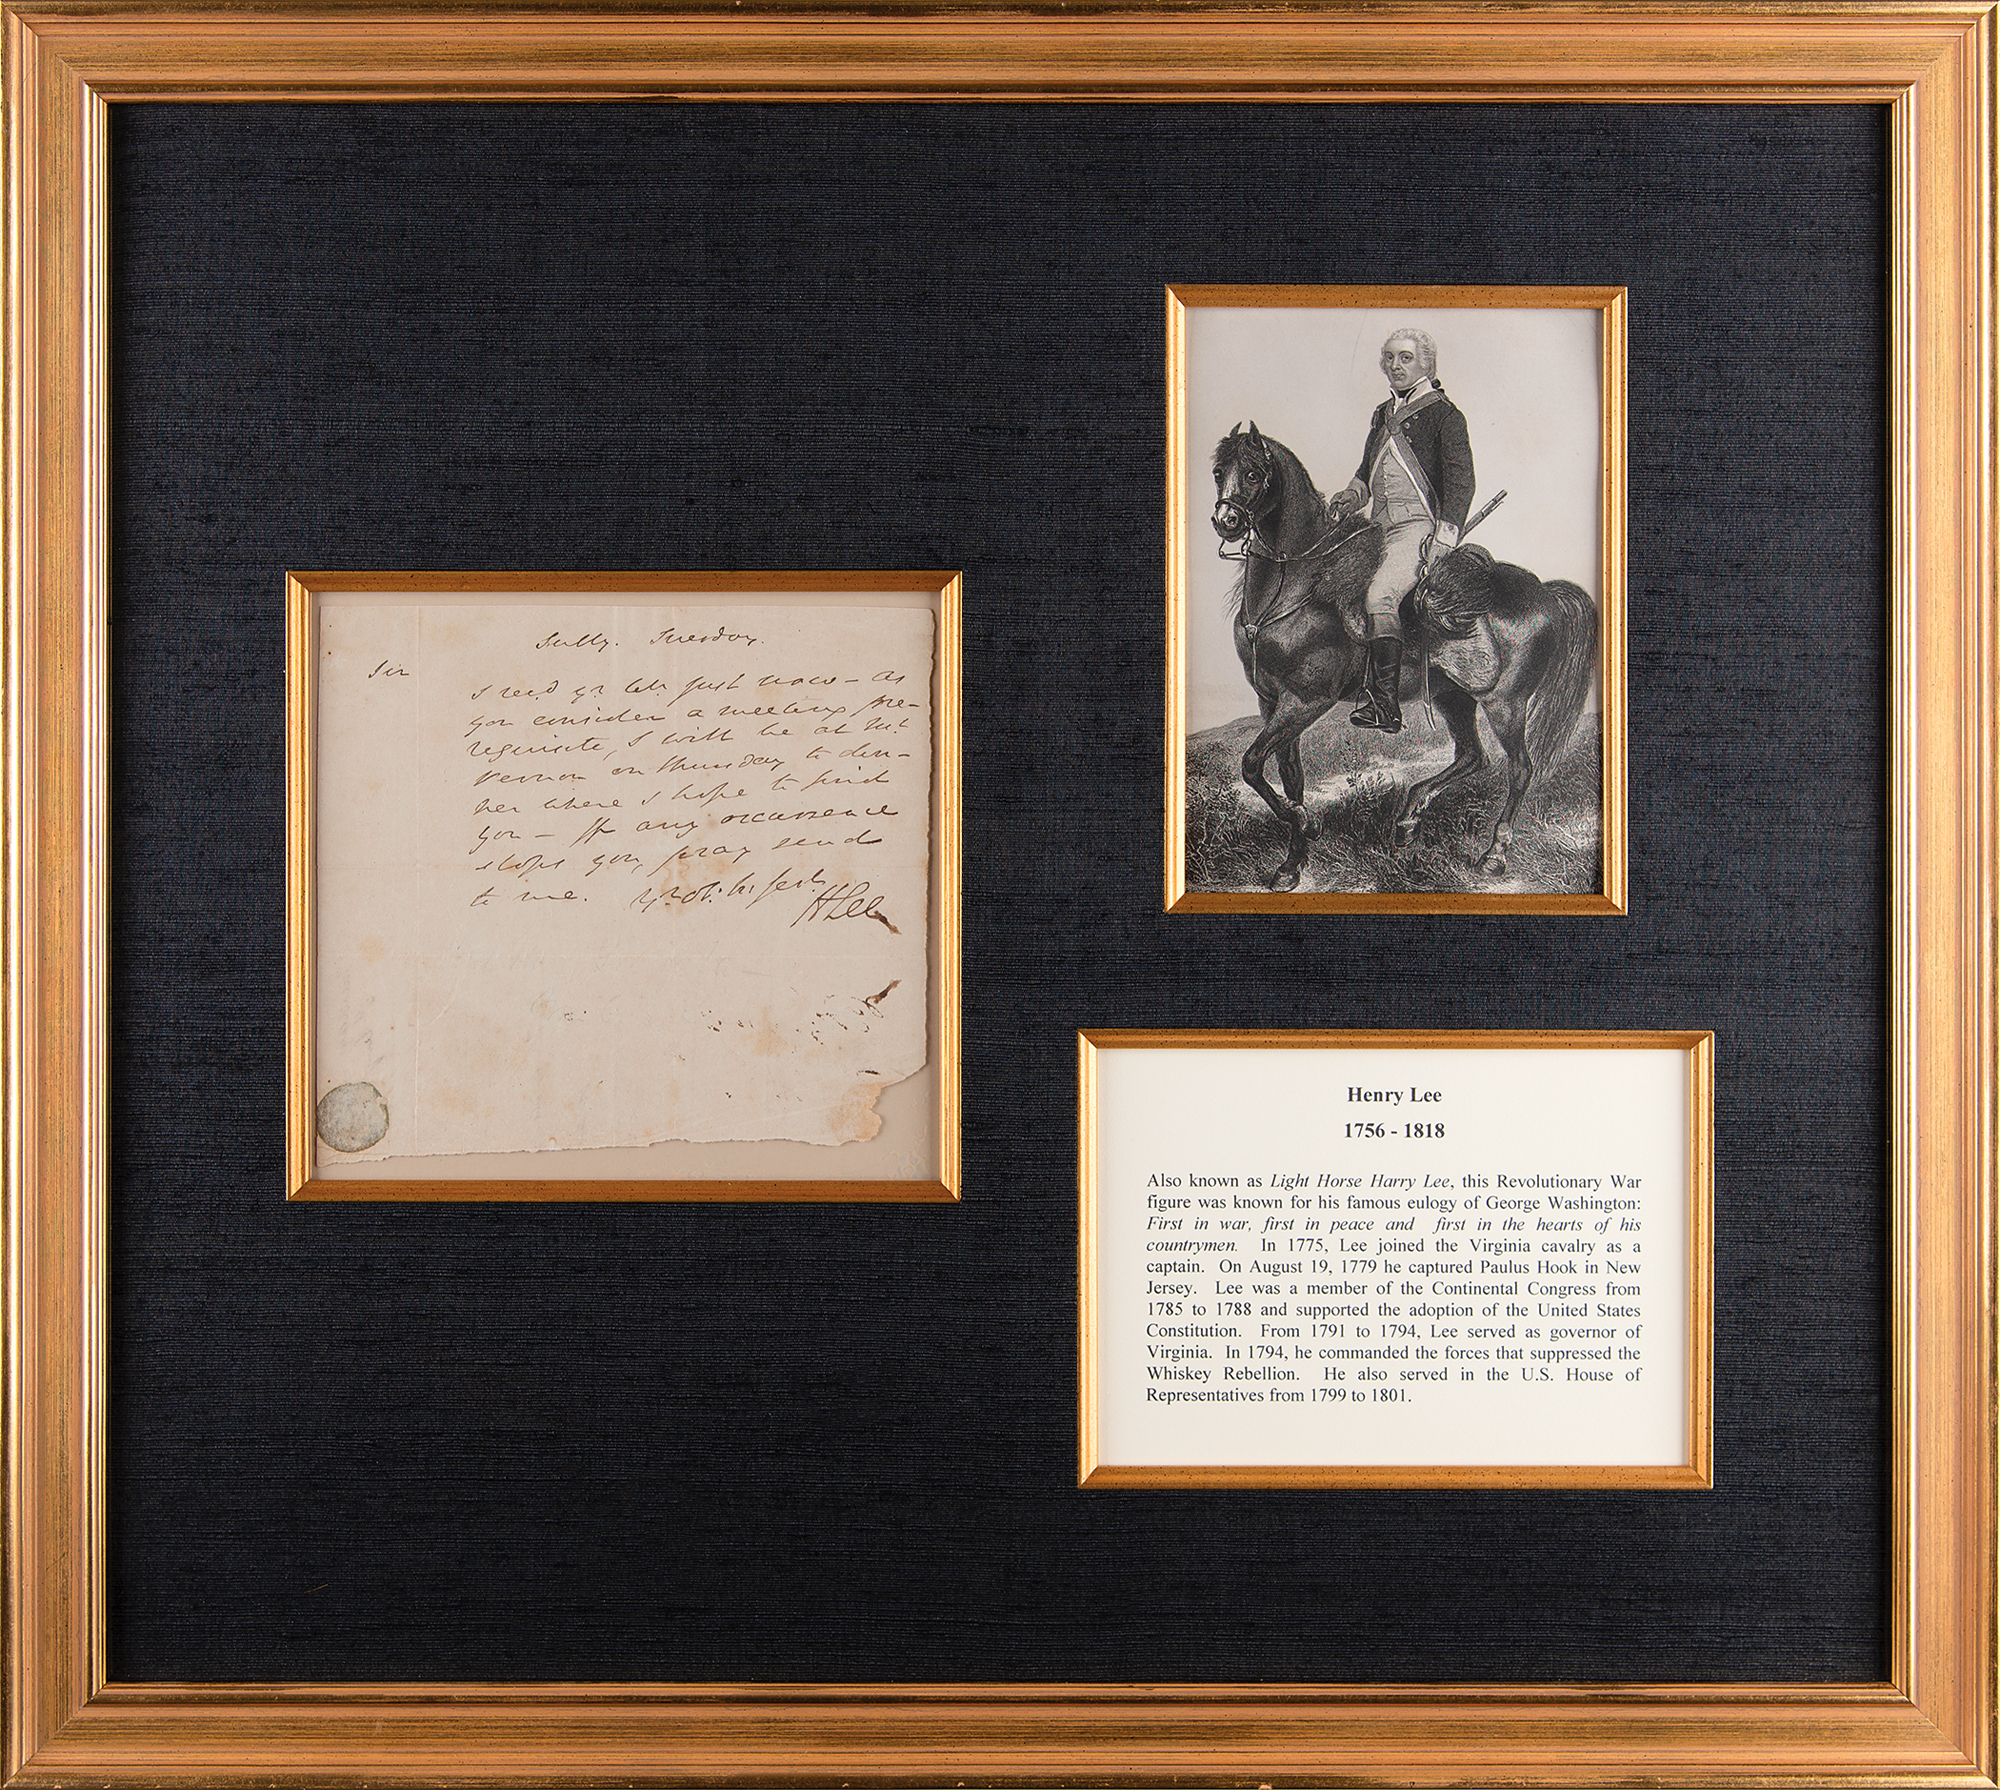 Sully. Tuesday.
Sir
I recd yr letr just now – as
you consider a meeting pre-
requisite, I will be at Mt.
Vernon on thursday to din-
ner where I hope to find
you – If any occurrence
stops you, pray send
to me. yr ob: h: servt
H Lee
Henry Lee
1756 - 1818
Also known as Light Horse Harry Lee, this Revolutionary War
figure was known for his famous eulogy of George Washington:
First in war, first in peace and first in the hearts of his
countrymen. In 1775, Lee joined the Virginia cavalry as a
captain. On August 19, 1779 he captured Paulus Hook in New
Jersey. Lee was a member of the Continental Congress from
1785 to 1788 and supported the adoption of the United States
Constitution. From 1791 to 1794, Lee served as governor of
Virginia. In 1794, he commanded the forces that suppressed the
Whiskey Rebellion. He also served in the U.S. House of
Representatives from 1799 to 1801.